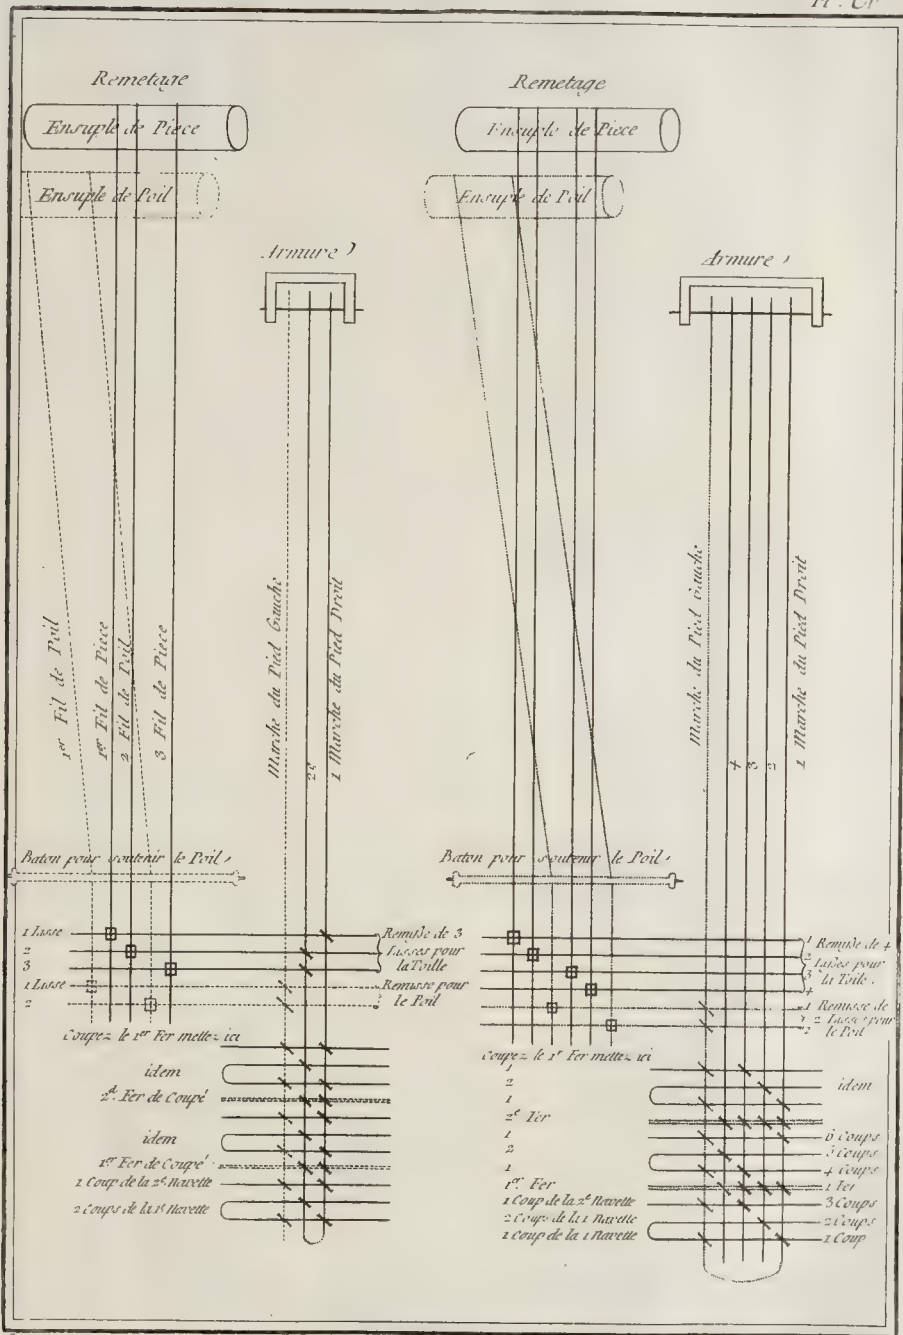 Remetage
Ensuple de Piece
Ensuple de Poil
Armure
1er Fil de Poil
1er Fil de Piece
2 Fil de Poil
3 Fil de Piece
Marche du Pied Gauche
2e
1 Marche du Pied Droit
Baton pour soutenir le Poil
1 Lisse
2
3
1 Lisse
2
Remisse de 3
Lisses pour
la Toille
Remisse pour
le Poil
Coupez le 1er Fer mettez ici
idem
2d. Fer de Coupé
idem
1er Fer de Coupé
1 Coup de la 2e Navette
2 Coups de la 1e Navette
Remetage
Ensuple de Piece
Ensuple de Poil
Armure
Marche du Pied Gauche
4
3
2
1 Marche du Pied Droit
Baton pour soutenir le Poil
1 Remisse de 4
2 Lisses pour
3 la Toile
4
1 Remisse de
2 Lisses pour
2 le Poil
Coupez le 1r Fer mettez ici
1
2
idem
1
2e Fer
1
6 Coups
2
5 Coups
1
4 Coups
1er Fer
1 Fer
1 Coup de la 2e Navette
3 Coups
2 Coups de la 1 Navette
2 Coups
1 Coup de la 1 Navette
1 Coup